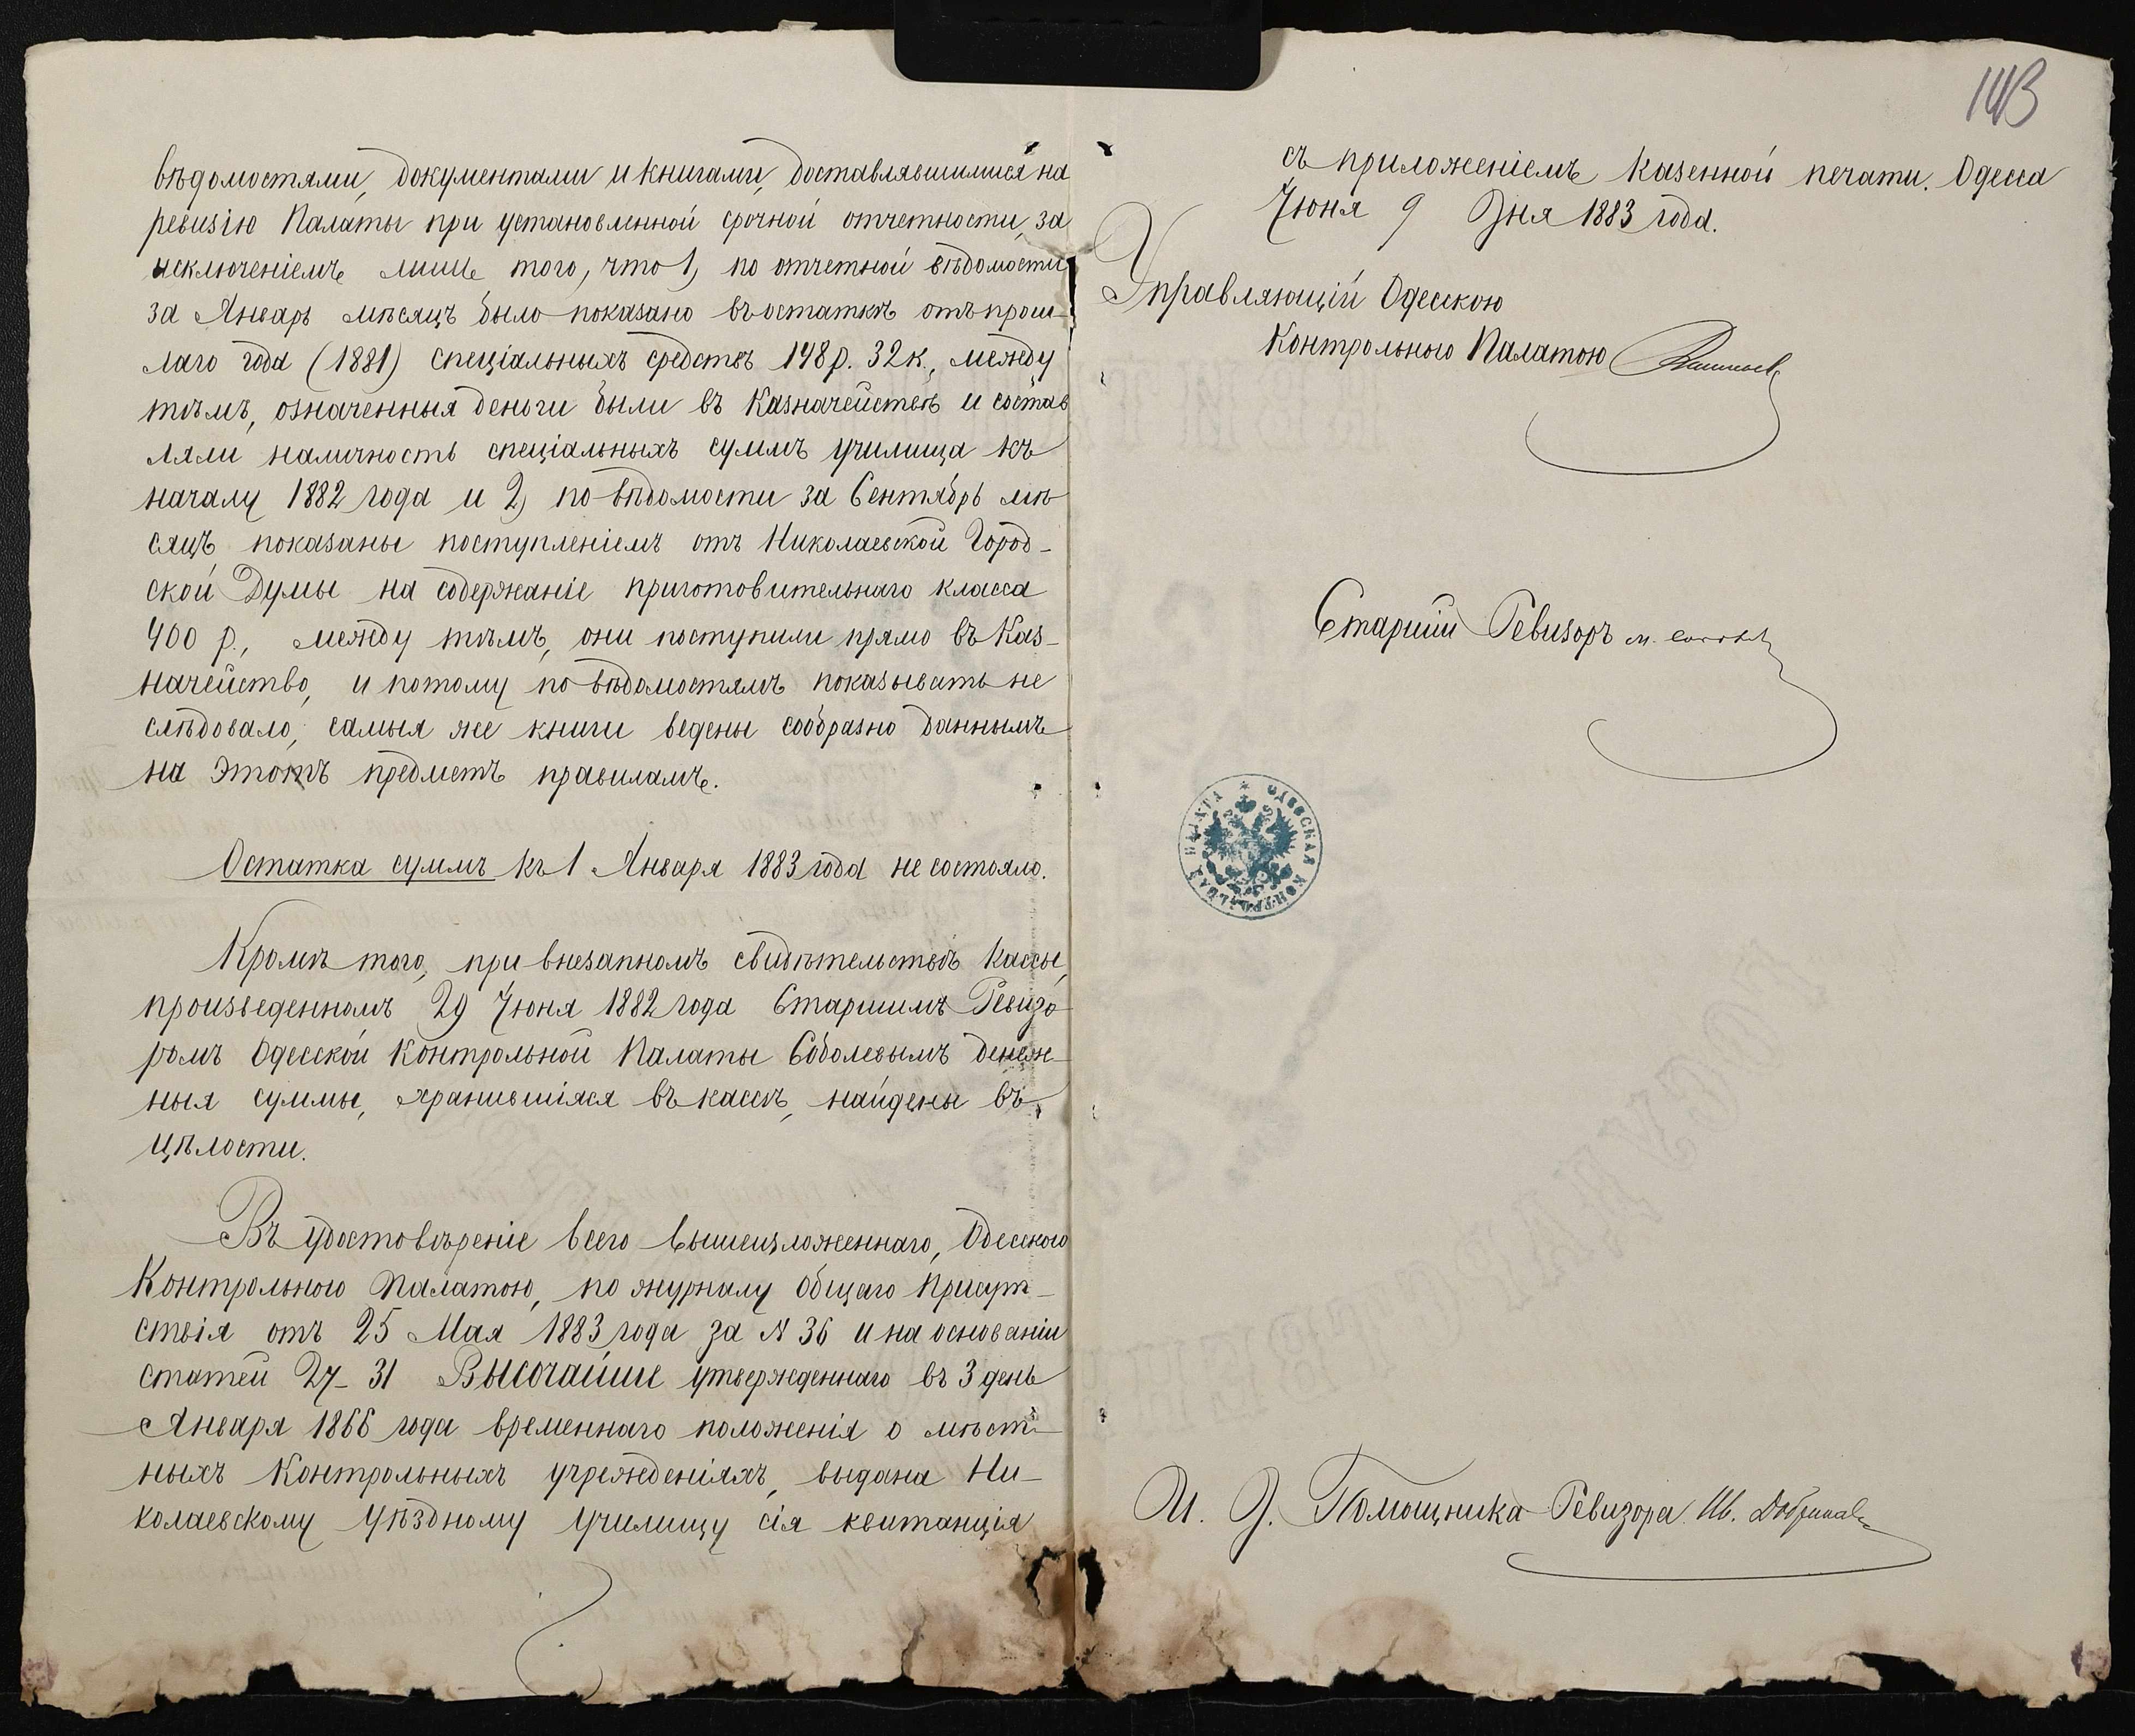 вѣдомостями, документами и книгами, доставлявшимися на
ревизію Палаты при установленной срочной отчетности, за
исключеніемъ лишь того, что 1, по отчетной вѣдомости
за Январь мѣсяцъ было показано въ остаткѣ отъ прош-
лаго года (1881) спеціальныхъ средствъ 148 р. 32 к., между
тѣмъ, означенныя деньги были въ Казначействѣ и состав
ляли наличность спеціальныхъ суммъ училища къ
началу 1882 года и 2, по вѣдомости за Сентябрь мѣ
сяцъ показаны поступленіемъ отъ Николаевской Город-
ской Думы на содержаніе приготовительнаго класса
400 р., между тѣмъ, они поступили прямо въ Каз-
начейство, и потому по вѣдомостямъ показывать не
слѣдовало; самыя же книги ведены сообразно даннымъ
на этотъ предметъ правиламъ.
Остатка суммъ къ 1 Января 1883 года не состояло.
Кромѣ того, при внезапномъ свидѣтельствѣ кассы,
произведенномъ 29 Іюня 1882 года Старшимъ Ревизо
ромъ Одесской Контрольной Палаты Соболевымъ денеж-
ныя суммы, хранившіяся въ кассѣ, найдены въ
цѣлости.
Въ удостовѣреніе всего вышеизложеннаго, Одесскою
Контрольною Палатою, по журналу Общаго Присут-
ствія отъ 25 Мая 1883 года за № 36 и на основаніи
статей 27-31 Высочайше утвержденнаго въ 3 день
Января 1866 года временнаго положенія о мѣст-
ныхъ Контрольныхъ учрежденіяхъ, выдана Ни-
колаевскому Уѣздному Училищу сія квитанція
143
съ приложеніемъ казенной печати. Одесса
Іюня 9 дня 1883 года.
Управляющій Одесскою
Контрольною Палатою
Старшій Ревизоръ
ОДЕССКАЯ КОНТРОЛЬНАЯ ПАЛАТА
И. д. Помощника Ревизора Ив.